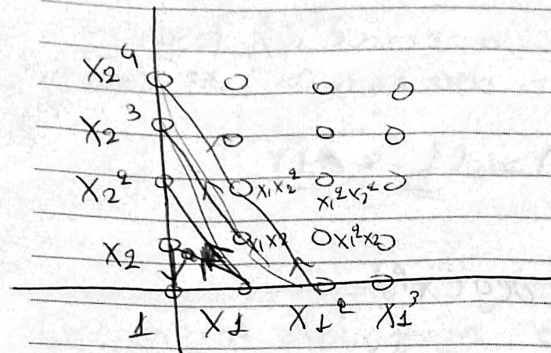 X2⁴
X2³
X2² x1x2² x1²x2²
X2 x1x2 x1²x2
1 X1 X1² X1³